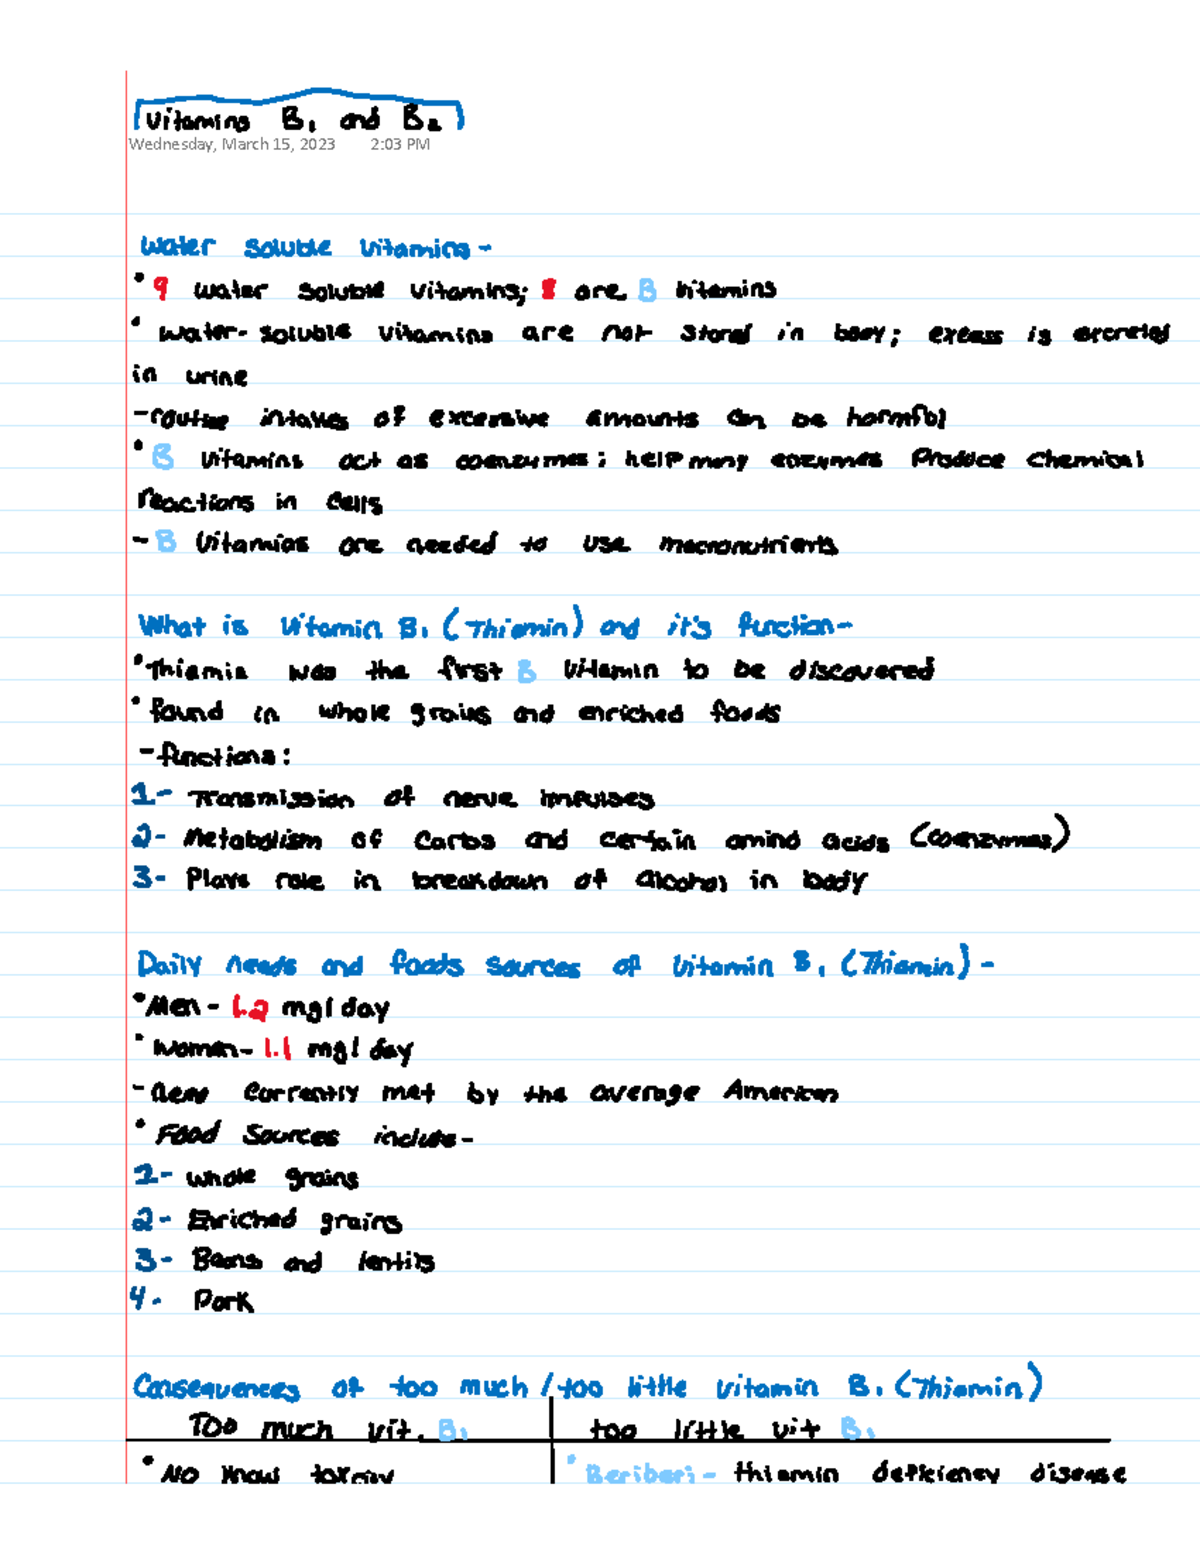 Vitamins B₁ and B₂
Wednesday, March 15, 2023 2:03 PM
Water soluble vitamins -
• 9 water soluble vitamins; 8 are B vitamins
• water-soluble vitamins are not stored in body; excess is excreted
in urine
- routine intakes of excessive amounts can be harmful
• B vitamins act as coenzymes; help many enzymes produce chemical
reactions in cells
- B vitamins are needed to use macronutrients
What is vitamin B₁ (Thiamin) and it's function -
• Thiamin was the first B vitamin to be discovered
• found in whole grains and enriched foods
- functions:
1- Transmission of nerve impulses
2- Metabolism of carbs and certain amino acids (coenzymes)
3- Plays role in breakdown of alcohol in body
Daily needs and foods sources of vitamin B₁ (Thiamin) -
• Men - 1.2 mg/day
• Women - 1.1 mg/day
- need currently met by the average American
• Food sources include -
1- whole grains
2- Enriched grains
3- Beans and lentils
4- Pork
Consequences of too much / too little vitamin B₁ (Thiamin)
Too much vit. B₁ too little vit B₁
• No know toxicity • Beriberi - thiamin deficiency disease